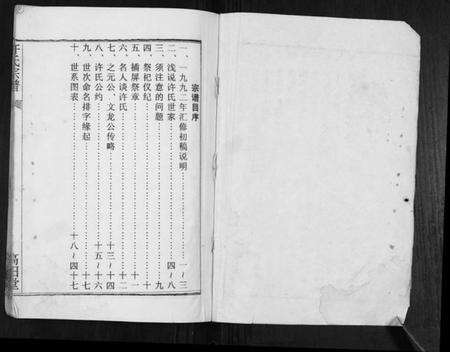 宗谱目序
一、一九九二年汇修初稿说明……………一~三
二、浅说许氏世家……………四~八
三、须注意的问题……………九
四、祭祀仪纪……………十
五、橘屏祭章……………十一
六、名人谈许氏……………十二
七、之元公、文龙公传略……………十三~十四
八、许氏公约……………十五~十六
九、世次命名排字缘起……………十七
十、世系图表……………十八~四十七
许氏宗谱
高阳堂